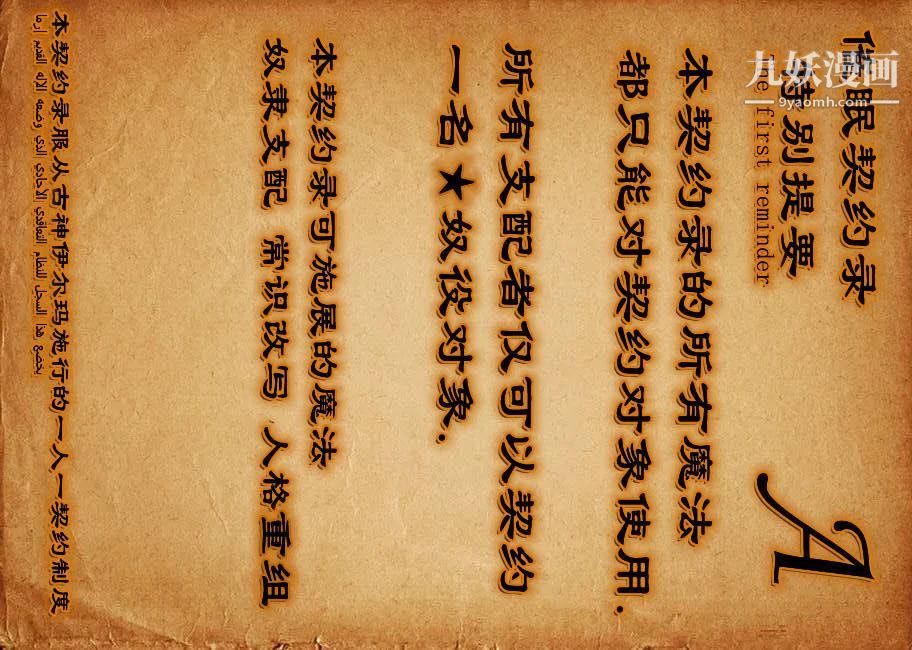 催眠契约录
特别提要
The first reminder
A
九妖漫画
9yaomh.com
本契约录的所有魔法
都只能对契约对象使用.
所有支配者仅可以契约
一名★奴役对象.
本契约录可施展的魔法
奴隶支配 常识改写 人格重组
本契约录服从古神伊尔玛施行的一人一契约制度
يخضع هذا السجل للنظام التعاقدي الأحادي الذي وضعه الإله القديم إرما